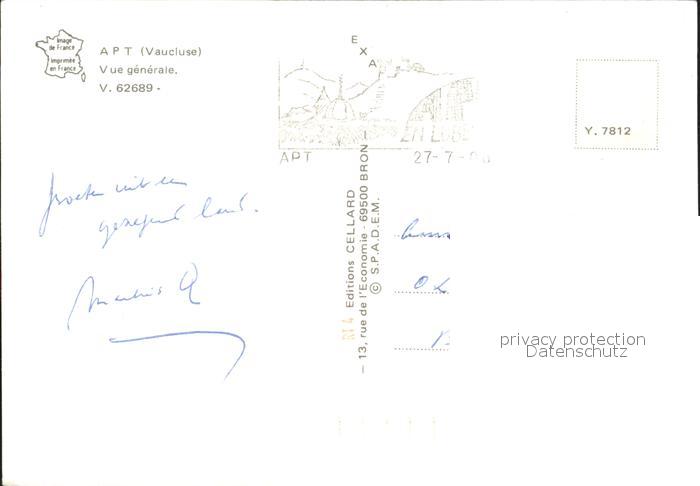 Image
de France
Imprimée
en France
APT (Vaucluse)
Vue générale.
V. 62689 -
EXA
EN LUBE
APT
27-7-
Y. 7812
groeten uit een
gezegend land.
RT 4
Editions CELLARD
— 13, rue de l'Economie - 69500 BRON —
© S.P.A.D.E.M.
privacy protection
Datenschutz